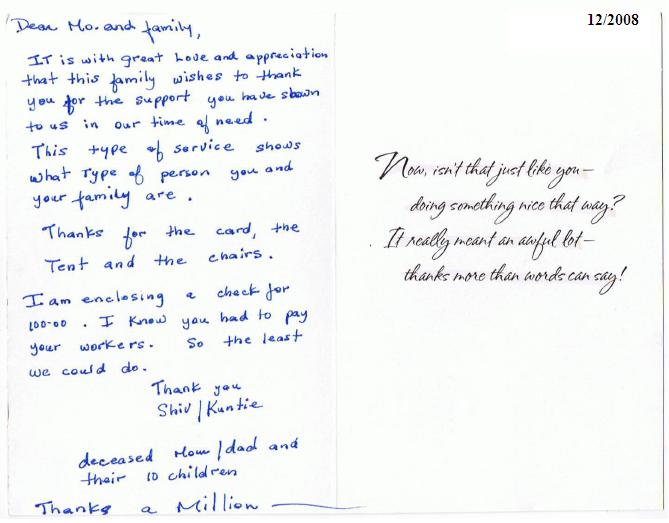 Dear Mo. and family,
IT is with great Love and appreciation
that this family wishes to thank
you for the support you have shown
to us in our time of need.
This type of service shows
what Type of person you and
your family are.
Thanks for the card, the
Tent and the chairs.
I am enclosing a check for
100-00. I know you had to pay
your workers. So the least
we could do.
Thank you
Shiv/Kuntie
deceased Mom/dad and
their 10 children
Thanks a Million
12/2008
Now, isn't that just like you—
doing something nice that way?
It really meant an awful lot—
thanks more than words can say!